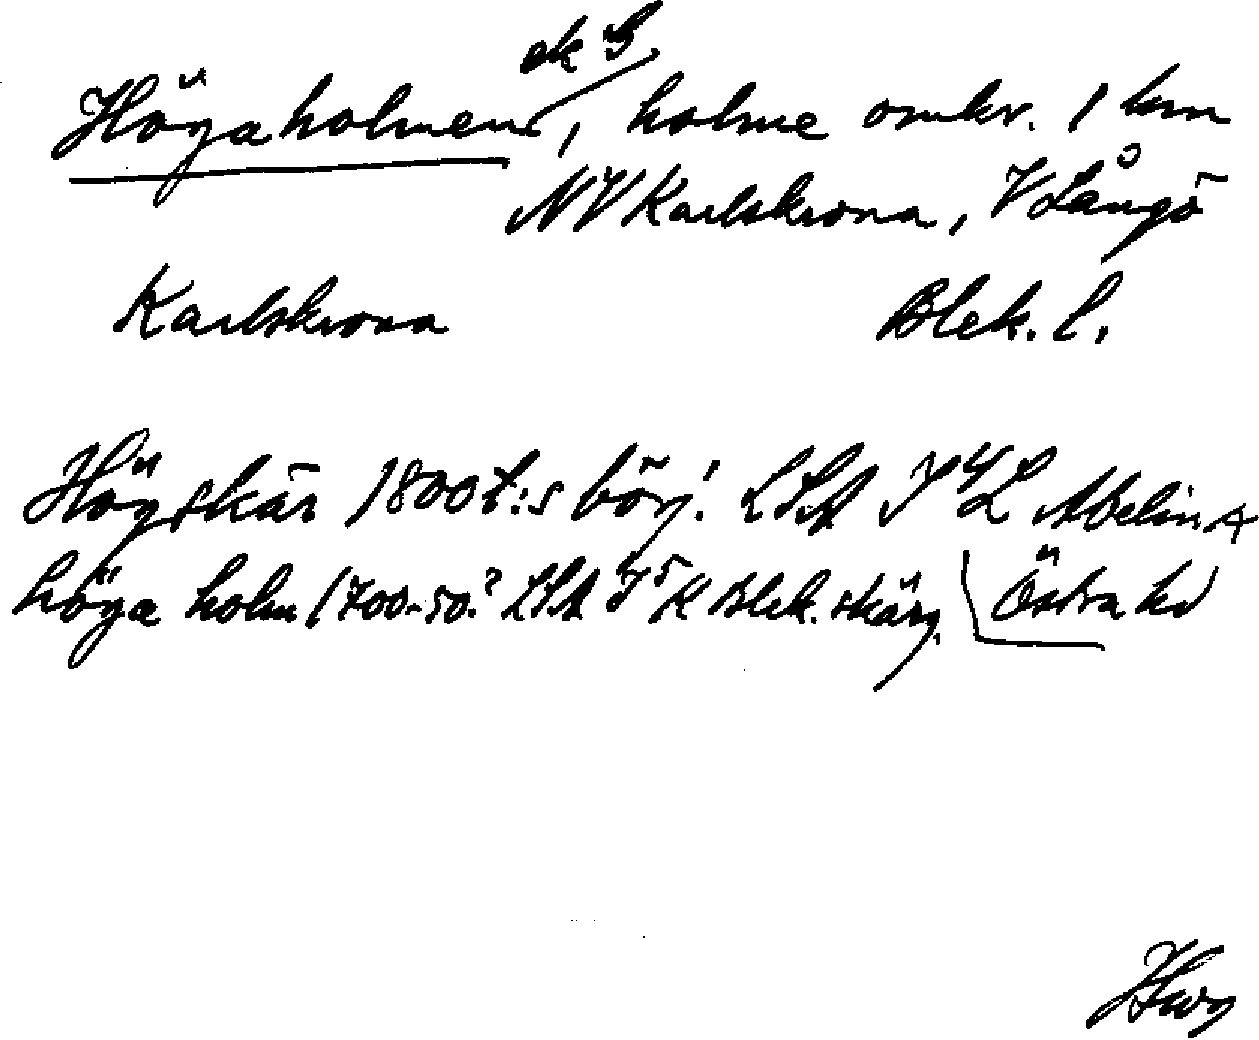 ek S
Högaholmen, holme omkr. 1 km
NV Karlskrona, V Långö
Karlskrona Blek. l.
Högskär 1800t:s börj. LSA Abelin
höga holm 1700-50? LSA Blek. skärg. Östra hd